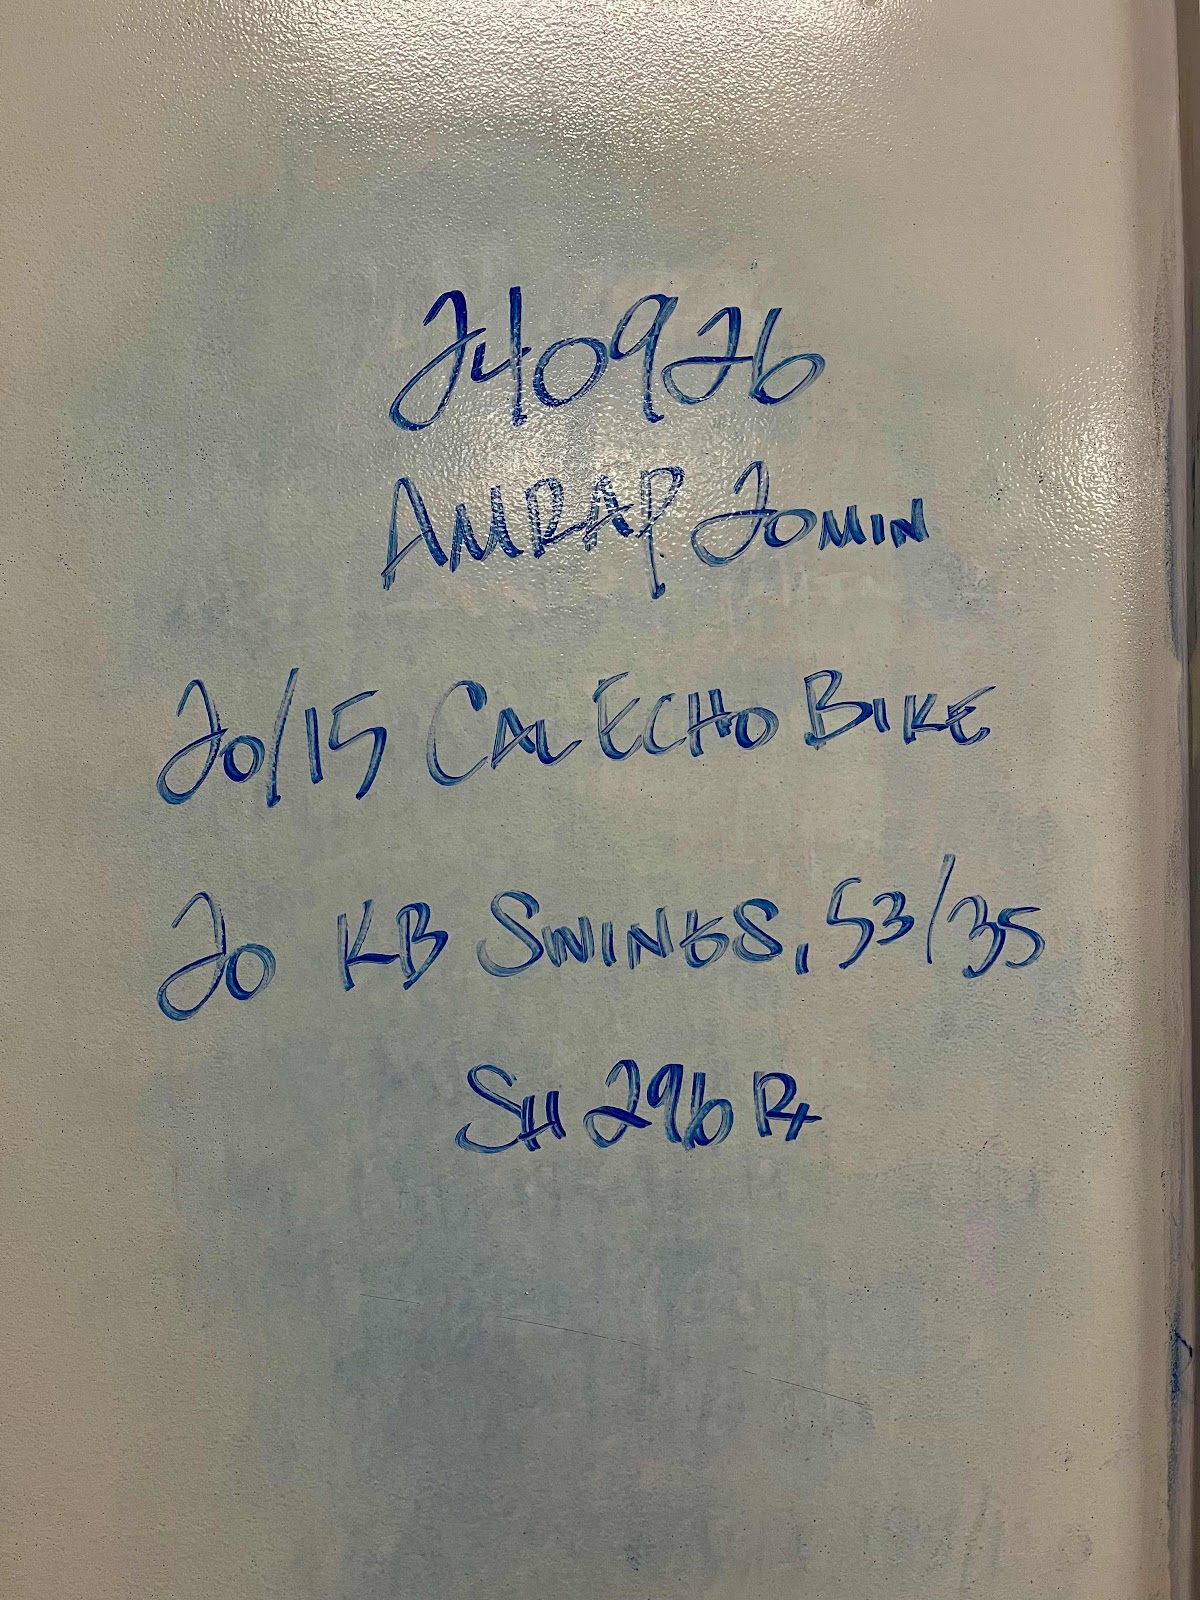 240926
AMRAP 20MIN
20/15 CAL ECHO BIKE
20 KB SWINGS, 53/35
SH 296 Rx